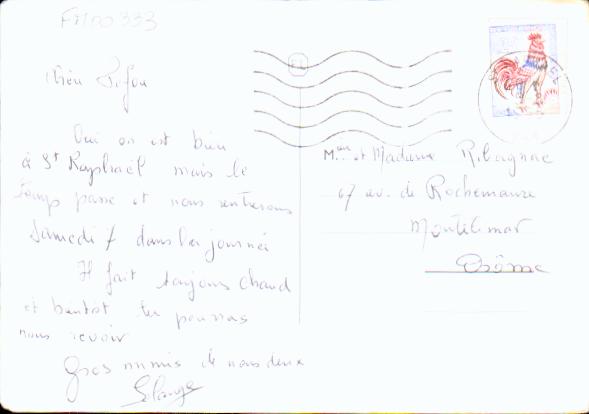 Oui on est bien
à St Raphaël mais le
temps passe et nous rentrerons
Samedi 7 dans la journée
Il fait toujours chaud
et bientôt tu pourras
nous revoir
Gros mimis de nous deux
Solange
et Madame Ribagnac
67 av. de Rochemaure
Montélimar
Drôme